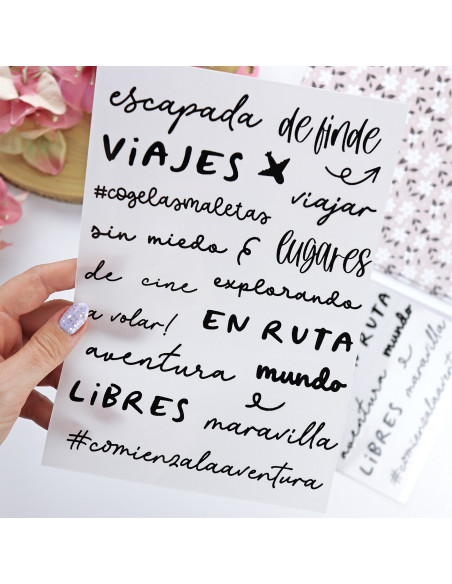 escapada de finde
ViAJES
viajar
#cogelasmaletas
sin miedo lugares
de cine explorando
a volar! EN RUTA
aventura mundo
LiBRES maravilla
#comienzalaaventura
RUTA
aventura mundo
LiBRES maravilla
#comienzalaaventu